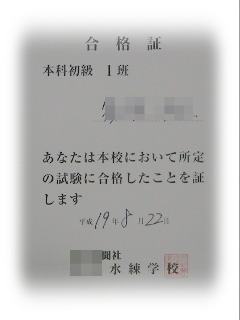 合格証
本科初級 I班
あなたは本校において所定
の試験に合格したことを証
します
平成19年8月22日
聞社
水練学校